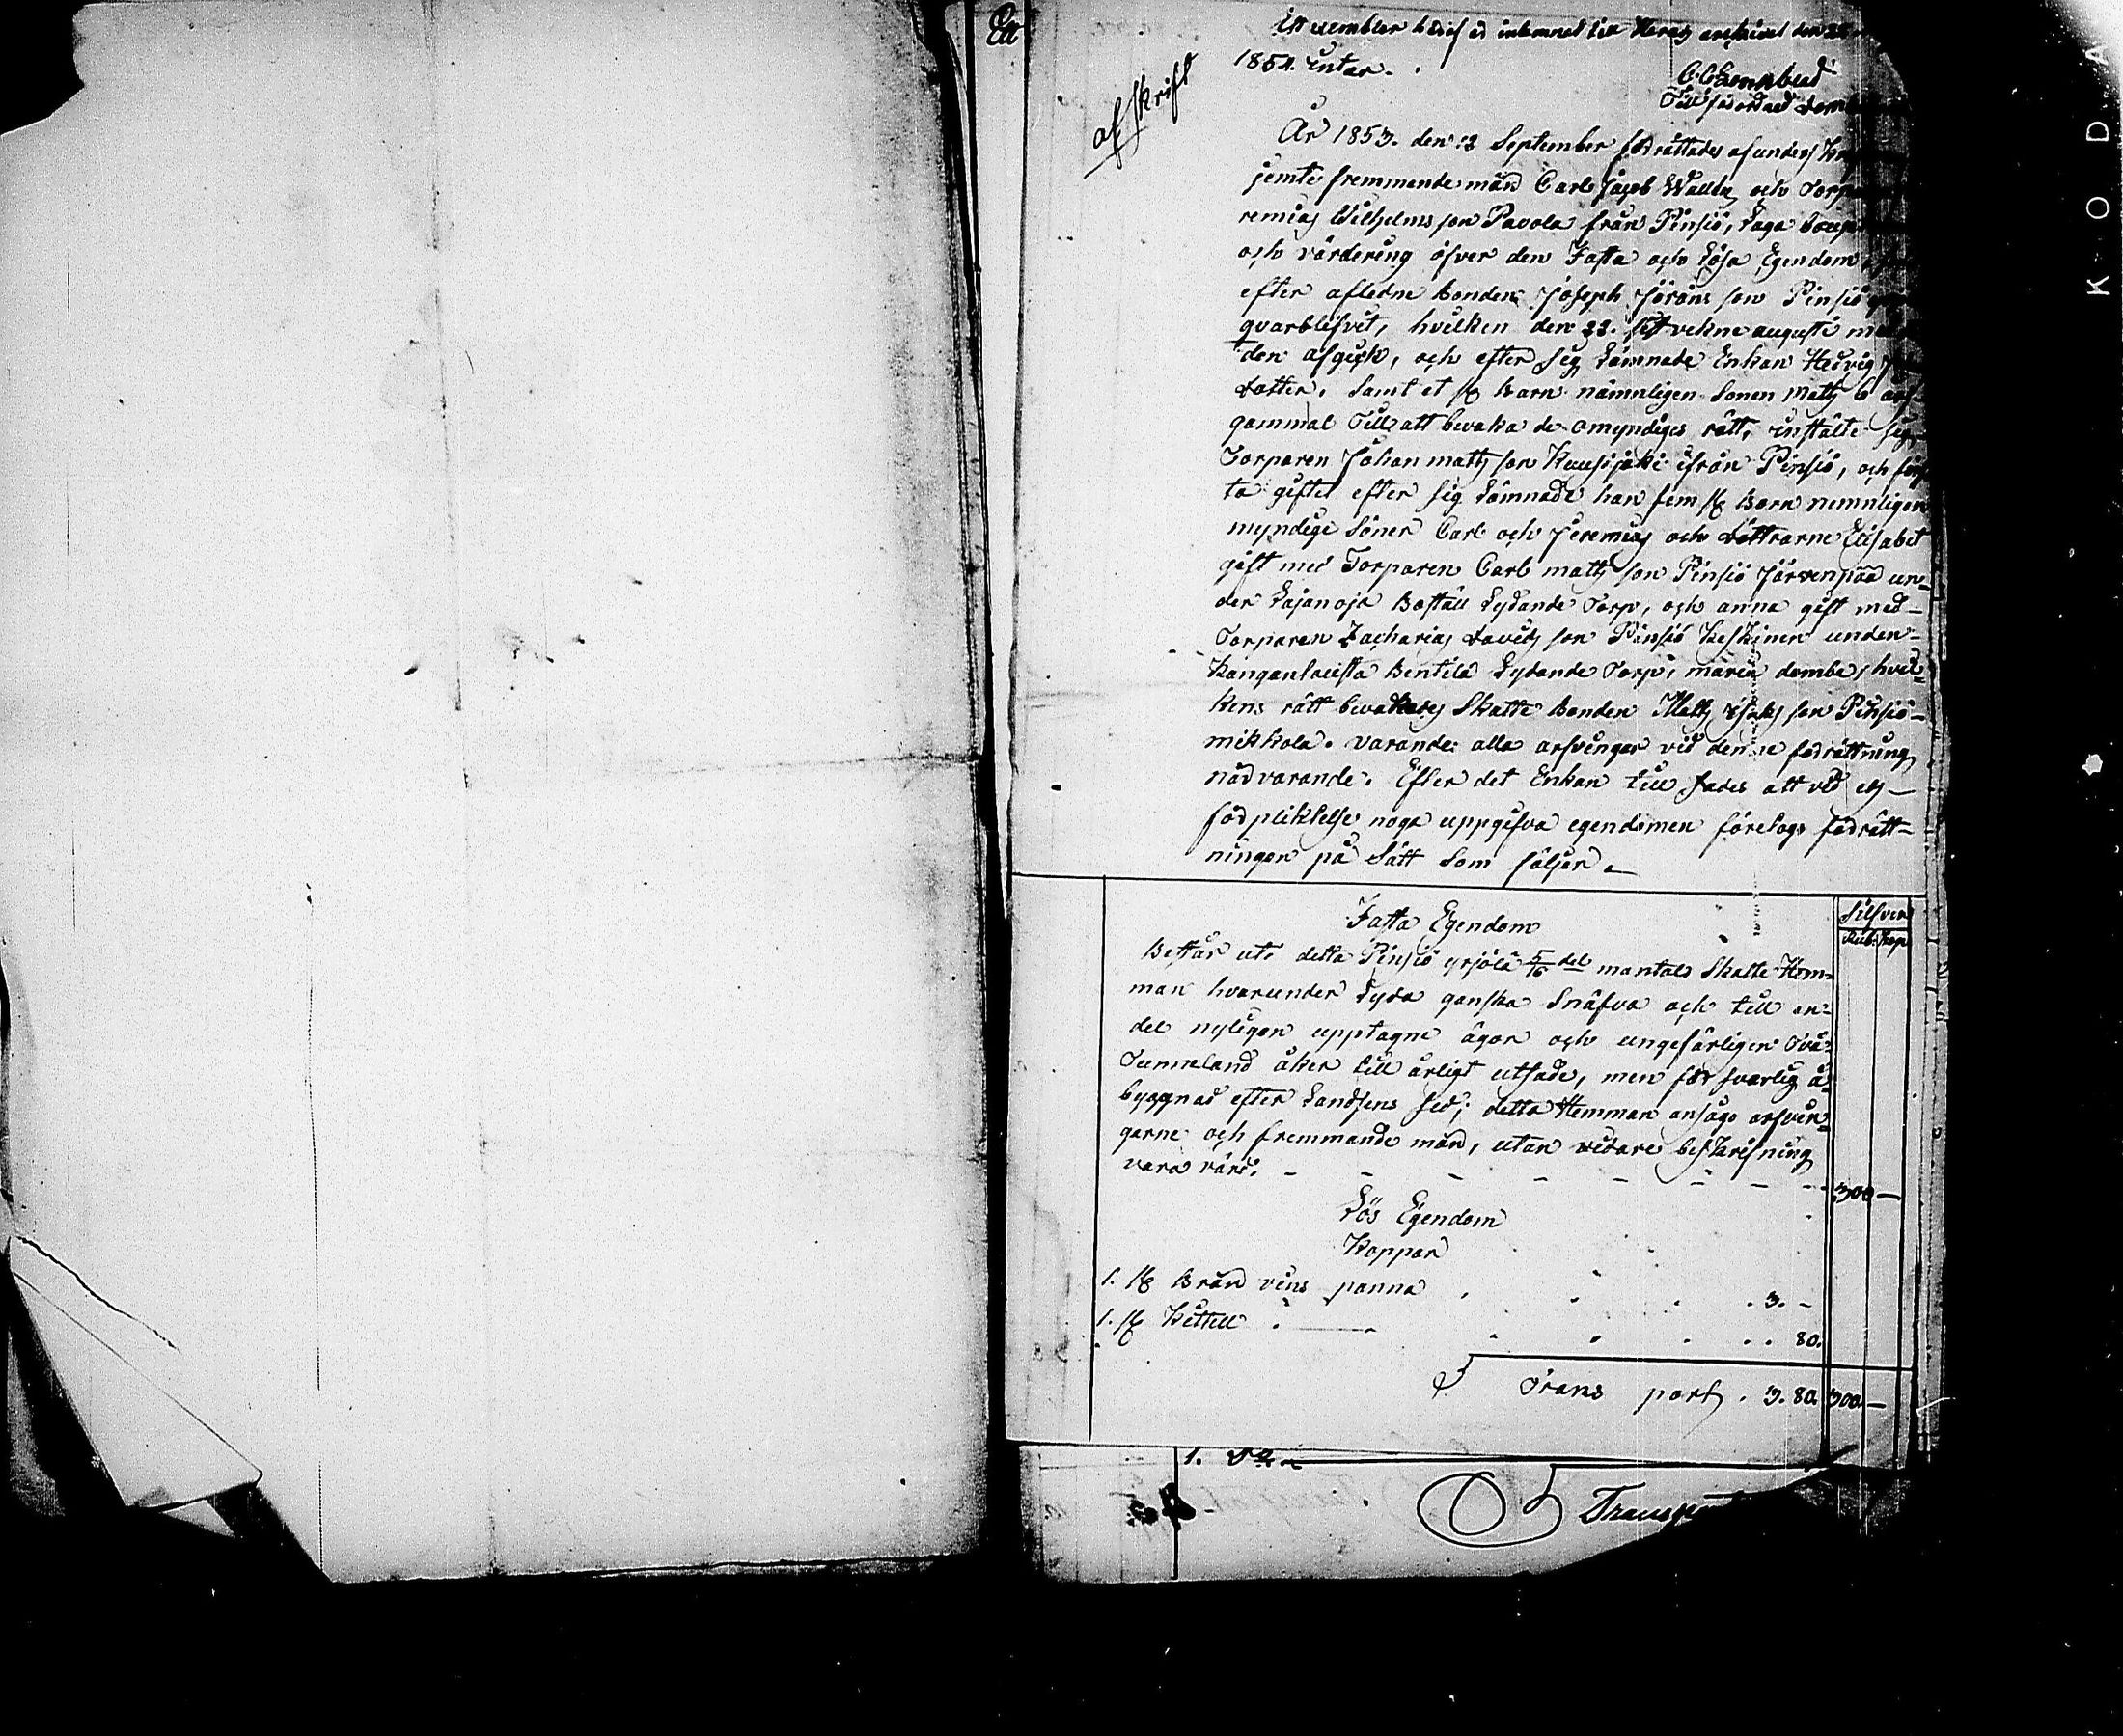 Ett exemplar häraf är inlemnat till Härads archivet den 22
1854. intar.
Till förordnad Dom
afskrift
År 1853. den 12 September förrättades af under
jemte fremmande män Carl Jacob Wallen och Torp
remias Wilhelms son Pavola från Pinsiö, Laga
och värdering öfver den Fasta och Lösa Egendom
efter afledne Bonden Joseph Jörans son Pinsiö
qvarblifvit, hvilken den 22. sistvekne augusti må
den afgick, och efter sig Lämnade Enkan Hedvig
dotter. Samt et st Barn nämnligen Sonen Matts 6 års
gammal Till att bevaka de omyndiges rätt, instälte sig
Torparen Johan matts son Kuusijoki ifrån Pinsiö, och förs
ta giftet efter sig Lämnade han fem st Barn nemnligen
myndige Söner Carl och Jeremias och döttrarne Elisabet
gift med Torparen Carl matts son Pinsiö Järvenpää un-
der Lajanoja Boställ Lydande Torp, och anna gift med
Torparen Zacharias davids son Pinsiö Keskinen under
Kanganlausta Bentilä Lydande Torp, maria dombe, hvil-
kens rätt bevakades Skatte Bonden Matts Isaks son Pinsiö
mikkola. varande alla arfvingar vid denne förrättning
närvarande. Efter det Enkan till sades att vid eds
förpliktelse noga uppgifva egendomen företogs förrätt-
ningen på Sätt som följer
Fasta Egendom
Silfver
Rub: kop
Består uti detta Pinsiö yrjölä 5/16 del mantals Skatte Hem-
man hvarunder Lyda ganska Snäfva och till en
del nyligen upptagne ägor och ungefärligen Två
Tunneland åker till årligt utsäde, men försvarlig å-
byggnad efter Landsens sed; detta Hemman ansågo arfvin-
garne och fremmande män, utan vidare beskrifning
vara värd. - - - - - - - 300 —
Lös Egendom
Koppar
1. st Bränvins panna . . . . 3. -
1. st Kittell . . . . . . 80.
Transport . 3. 80. 300 —
1. D:o
Transport